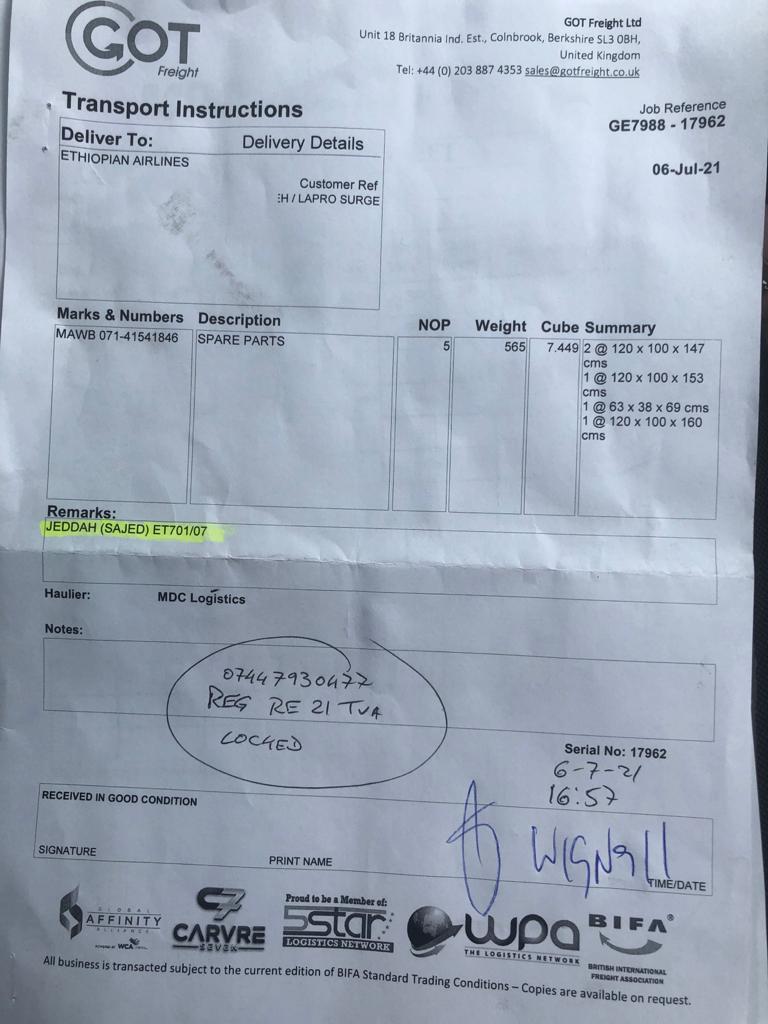 GOT
Freight
GOT Freight Ltd
Unit 18 Britannia Ind. Est., Colnbrook, Berkshire SL3 0BH,
United Kingdom
Tel: +44 (0) 203 887 4353 sales@gotfreight.co.uk
Transport Instructions
Job Reference
GE7988 - 17962
Deliver To: Delivery Details
ETHIOPIAN AIRLINES
06-Jul-21
Customer Ref
:H / LAPRO SURGE
Marks & Numbers Description NOP Weight Cube Summary
MAWB 071-41541846 SPARE PARTS 5 565 7.449 2 @ 120 x 100 x 147
cms
1 @ 120 x 100 x 153
cms
1 @ 63 x 38 x 69 cms
1 @ 120 x 100 x 160
cms
Remarks:
JEDDAH (SAJED) ET701/07
Haulier: MDC Logistics
Notes:
07447930477
REG RE 21 TVA
LOCKED
Serial No: 17962
6-7-21
16:57
RECEIVED IN GOOD CONDITION
WIGNall
SIGNATURE PRINT NAME TIME/DATE
GLOBAL
AFFINITY
ALLIANCE
POWERED BY WCA
C7
CARVRE
SEVEN
Proud to be a Member of:
5star
LOGISTICS NETWORK
wpa
THE LOGISTICS NETWORK
BIFA®
BRITISH INTERNATIONAL
FREIGHT ASSOCIATION
All business is transacted subject to the current edition of BIFA Standard Trading Conditions – Copies are available on request.